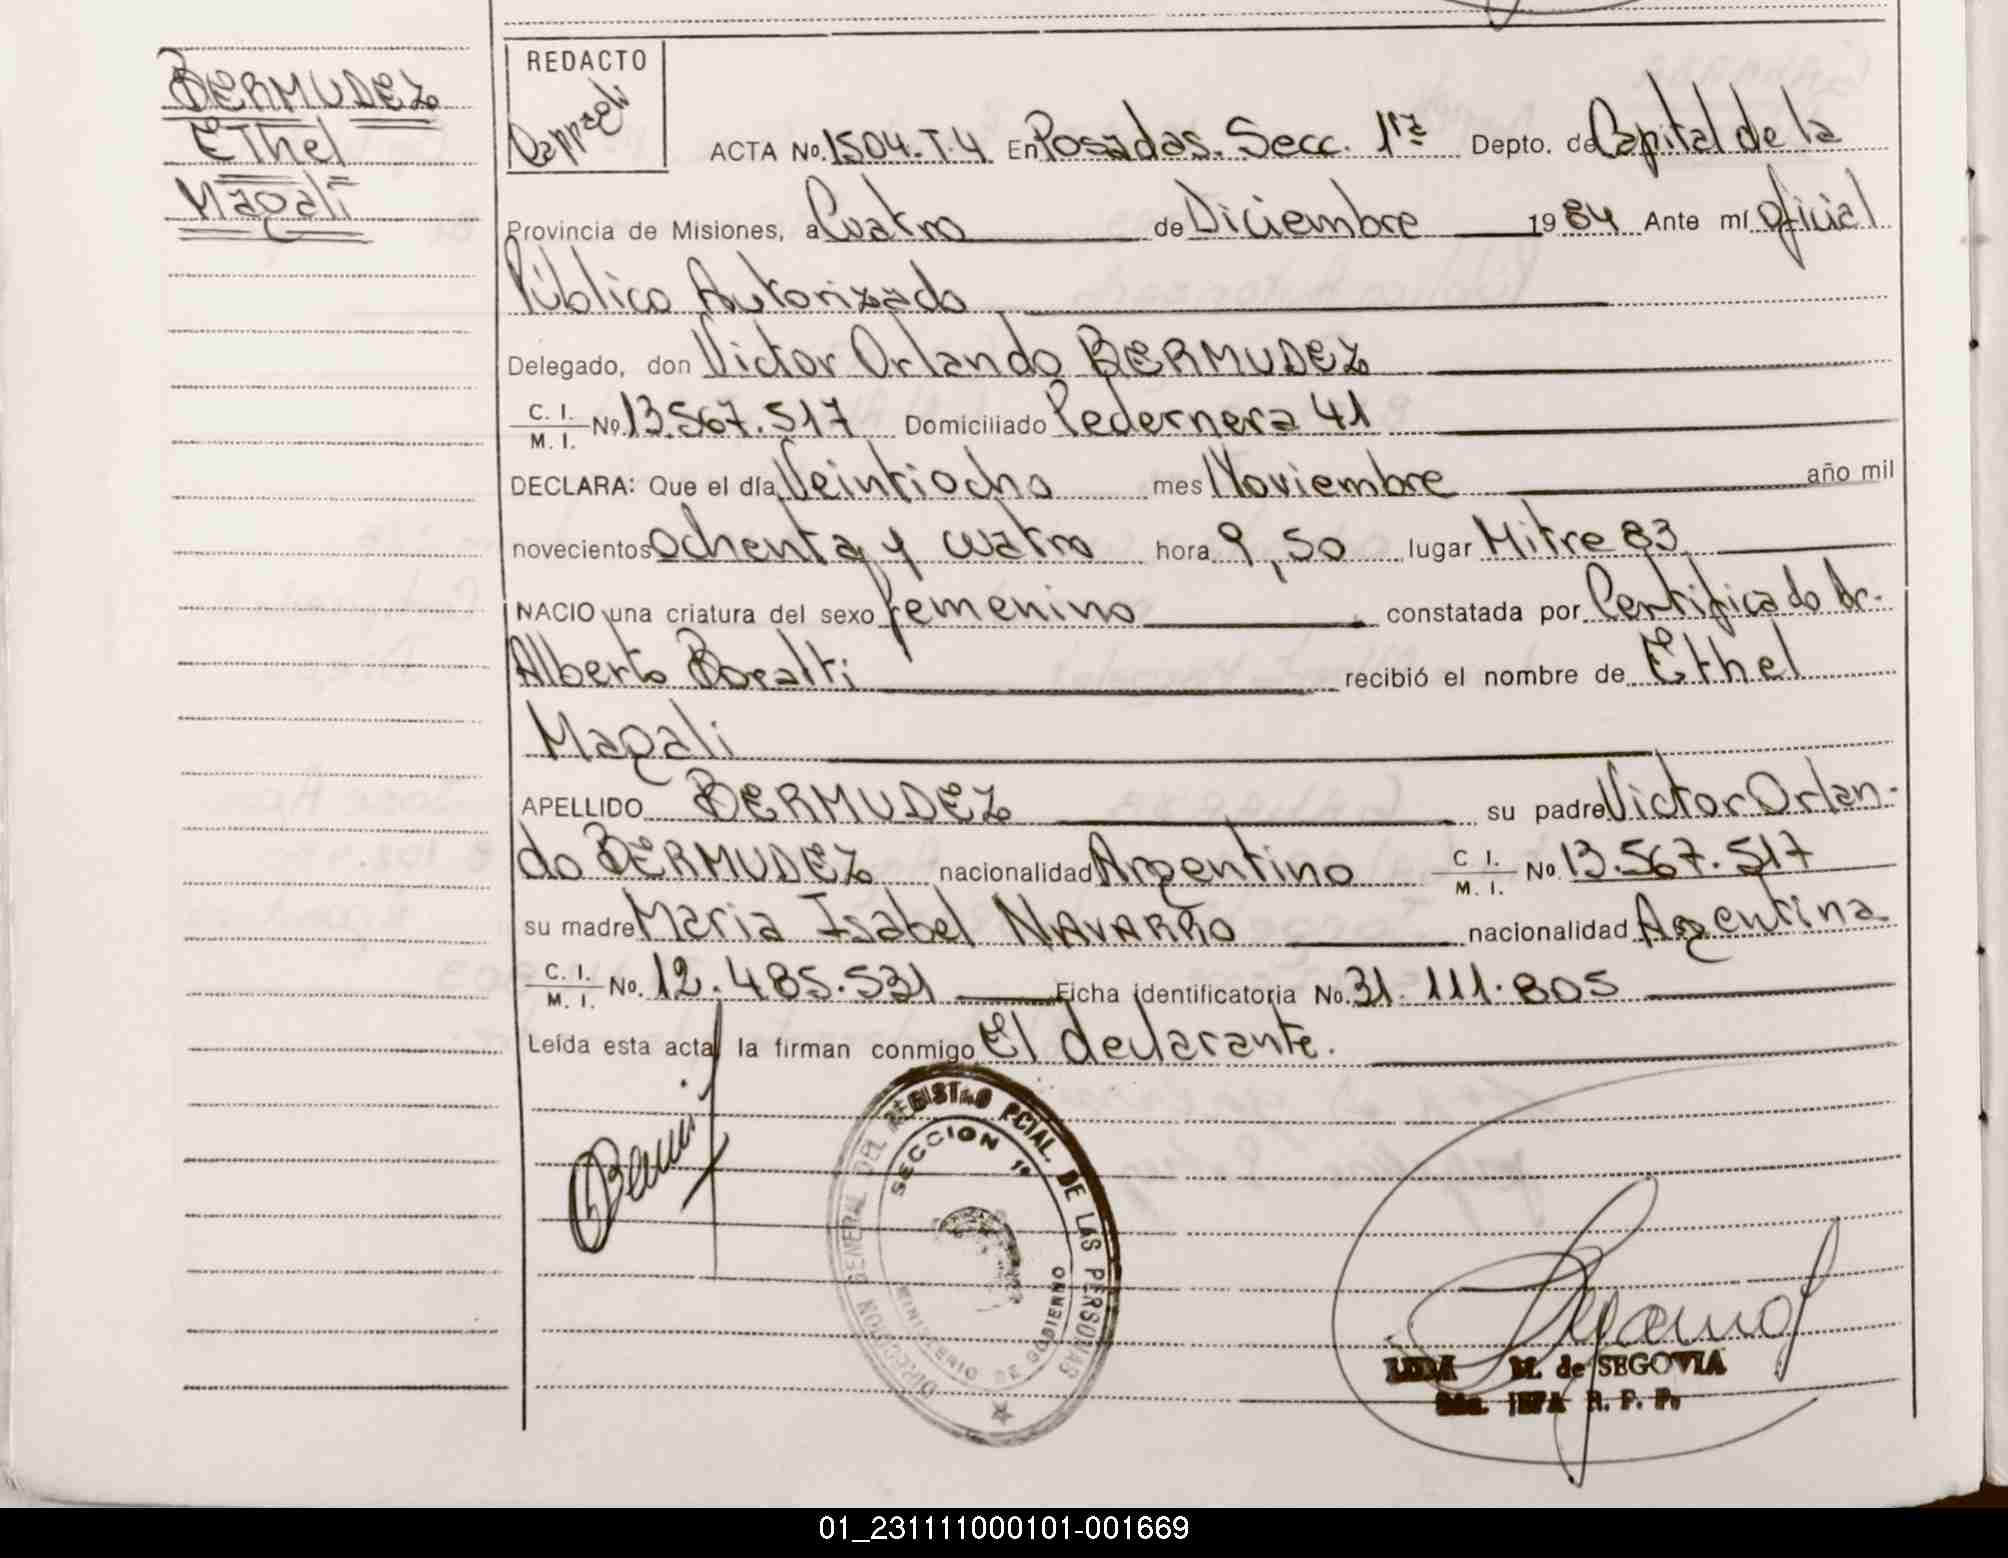 BERMUDEZ
Ethel
Magali
REDACTO
ACTA No. 1504.T.4 En Posadas. Secc. 1ra Depto. de Capital de la
Provincia de Misiones, a Cuatro de Diciembre 1984 Ante mí Oficial
Público Autorizado
Delegado, don Victor Orlando BERMUDEZ
C. I.
M. I. No. 13.567.517 Domiciliado Pedernera 41
DECLARA: Que el día Veintiocho mes Noviembre año mil
novecientos ochenta y cuatro hora 9,50 lugar Mitre 83
NACIO una criatura del sexo femenino constatada por Certificado Dr.
Alberto recibió el nombre de Ethel
Magali
APELLIDO BERMUDEZ su padre Victor Orlan-
do BERMUDEZ nacionalidad Argentino C. I. M. I. No. 13.567.517
su madre Maria Isabel NAVARRO nacionalidad Argentina
C. I.
M. I. No. 12.485.531 Ficha identificatoria No. 31.111.805
Leída esta acta, la firman conmigo El declarante.
DIRECCION GENERAL DEL REGISTRO PCIAL. DE LAS PERSONAS
SECCION 1a
MINISTERIO DE GOBIERNO
M. de SEGOVIA
JEFA R. P. P.
01_231111000101-001669